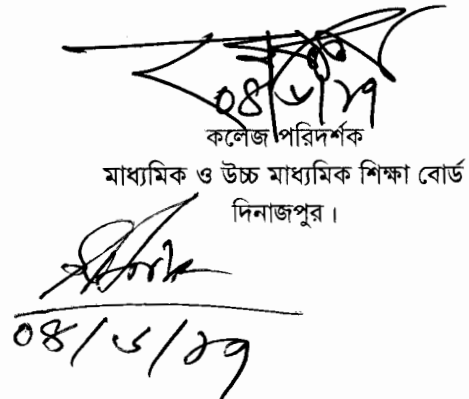 ০৪/৬/১৭
কলেজ পরিদর্শক
মাধ্যমিক ও উচ্চ মাধ্যমিক শিক্ষা বোর্ড
দিনাজপুর।
০৪/৬/১৭